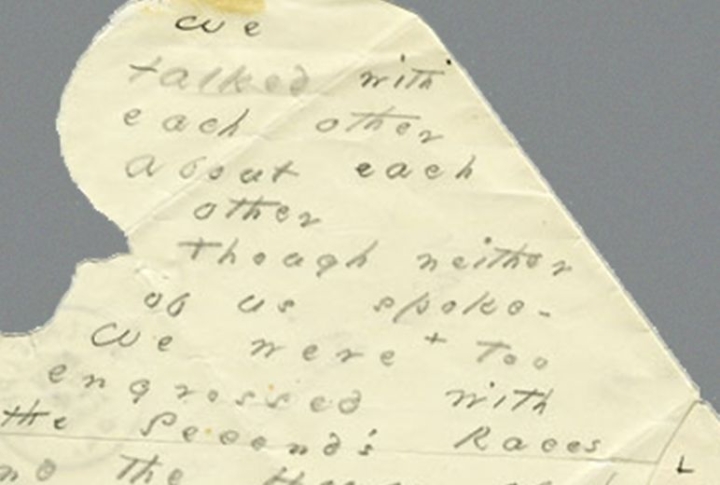 We
talked with
each other
about each
other
Though neither
of us spoke -
We were + too
engrossed with
the Second's Races
the